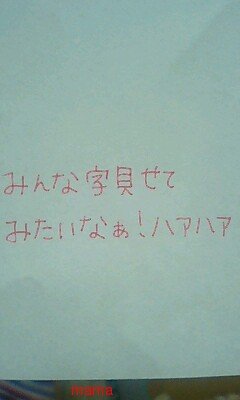 みんな字貝せて
みたいなぁ!ハァハァ
mama